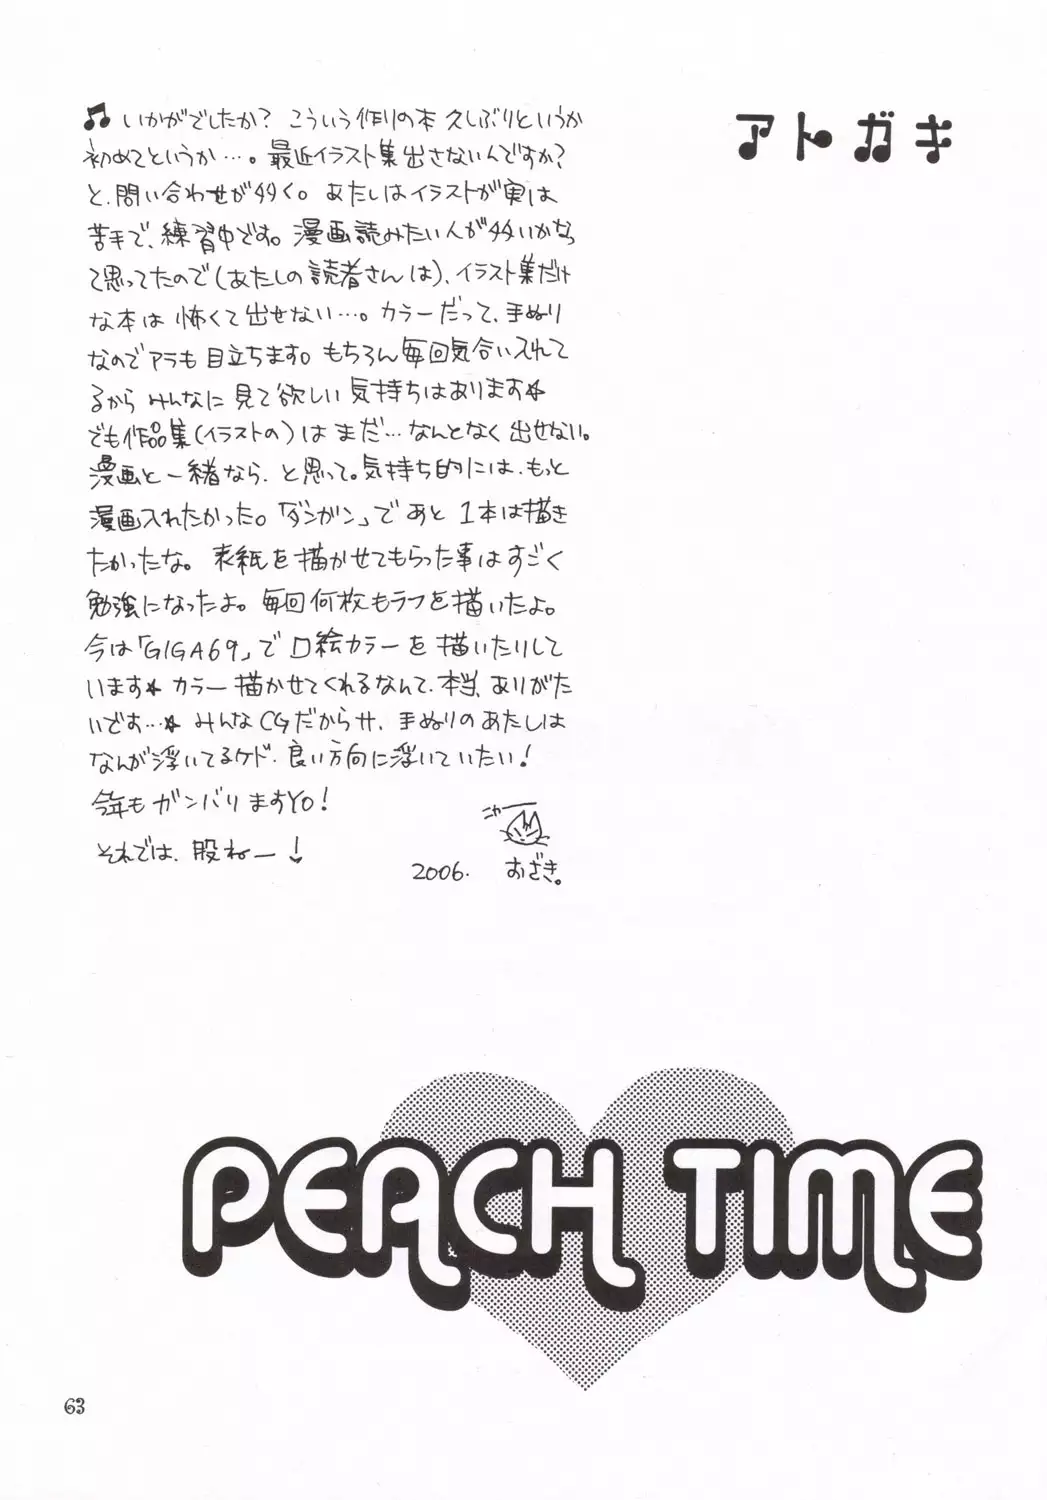 アトガキ
♫ いかがでしたか? こういう作りの本 久しぶりというか
初めてというか…。最近イラスト集出さないんですか?
と、問い合わせが多く。あたしはイラストが実は
苦手で、練習中です。漫画読みたい人が多いかなっ
て思ってたので(あたしの読者さんは)、イラスト集だけ
な本は 怖くて出せない…。カラーだって、手ぬり
なのでアラも目立ちます。もちろん毎回気合い入れて
るから みんなに見て欲しい気持ちはあります★
でも作品集(イラストの)は まだ…なんとなく出せない。
漫画と一緒なら、と思って。気持ち的には、もっと
漫画入れたかった。「ダンガン」であと 1本は描き
たかったな。表紙を描かせてもらった事はすごく
勉強になったよ。毎回何枚もラフを描いたよ。
今は「GIGA69」で口絵カラーを描いたりして
います★ カラー描かせてくれるなんて、本当、ありがた
いです…★ みんなCGだからサ、手ぬりのあたしは
なんが浮いてるケド、良い方向に浮いていたい!
今年もガンバりますYO!
それでは、股ねー!
ニャー
2006. おざき。
PEACH TIME
63